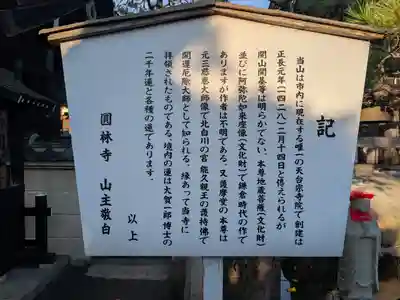 記
当山は市内に現在する唯一の天台宗寺院で創建は
正長元年(一四二八)二月十四日と傳えられるが
開山開基等は明らかでない、本尊地蔵菩薩(文化財)
並びに阿弥陀如来座像(文化財)で鎌倉時代の作で
ありますが作者は不明である。又護摩堂の本尊は
元三慈恵大師像で北白川の宮能久親王の護持佛で
開運厄除大師として知られる。縁あって当寺に
拝領されたものである境内の蓮は大賀一郎博士の
二千年蓮と各種の蓮であります。
以上
圓林寺 山主敬白